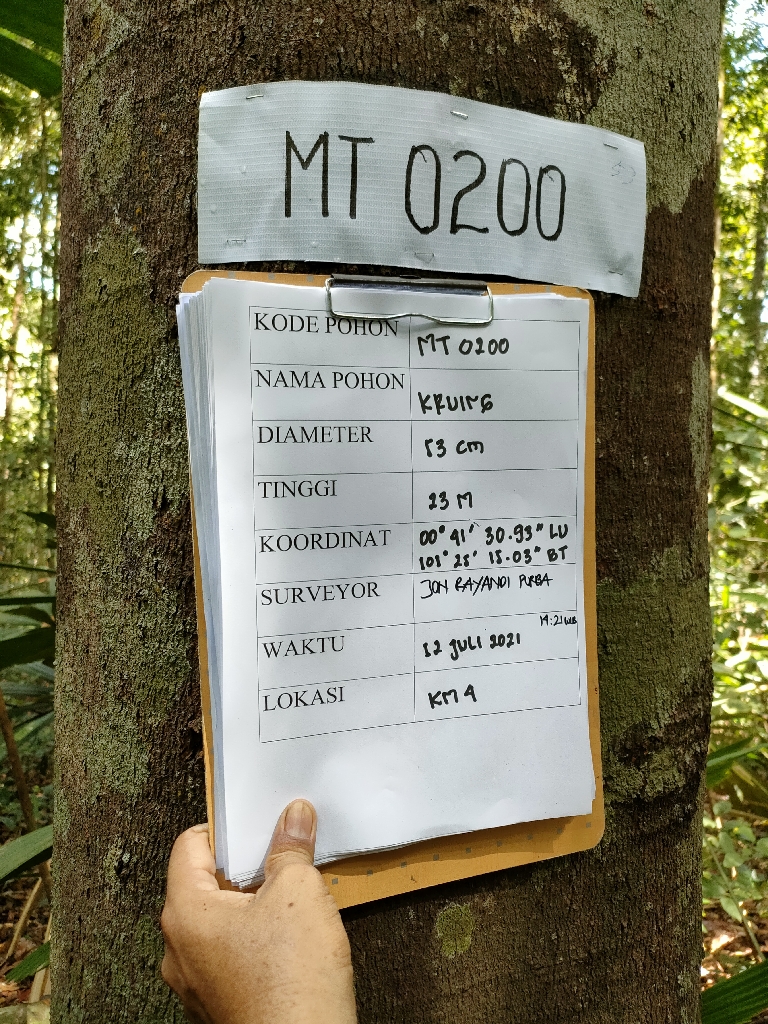 MT 0200
KODE POHON MT 0200
NAMA POHON KRUING
DIAMETER 53 cm
TINGGI 23 M
KOORDINAT 00° 41' 30.93" LU
101° 25' 15.03" BT
SURVEYOR JON RAYANDI PURBA
WAKTU 12 JULI 2021
LOKASI KM 4